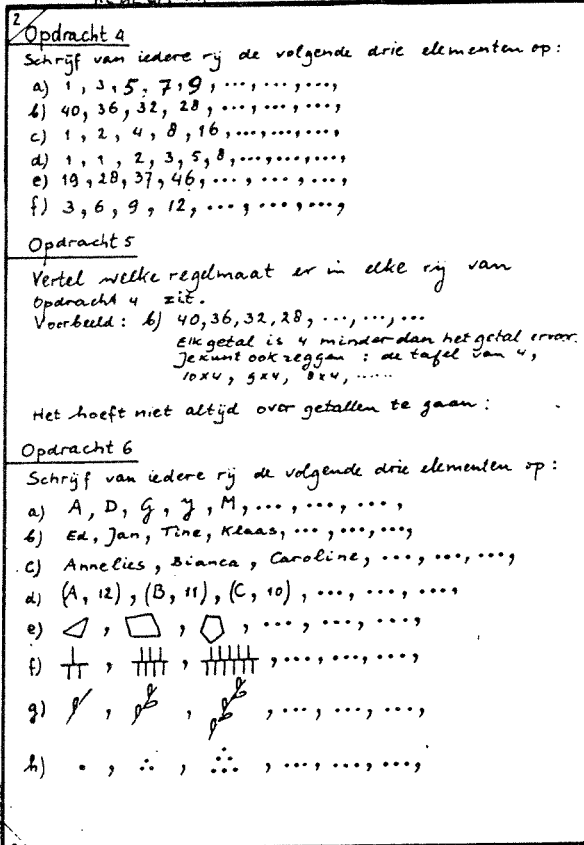 2
Opdracht 4
Schrijf van iedere rij de volgende drie elementen op:
a) 1, 3, 5, 7, 9, ..., ..., ...,
b) 40, 36, 32, 28, ..., ..., ...,
c) 1, 2, 4, 8, 16, ..., ..., ...,
d) 1, 1, 2, 3, 5, 8, ..., ..., ...,
e) 19, 28, 37, 46, ..., ..., ...,
f) 3, 6, 9, 12, ..., ..., ...,
Opdracht 5
Vertel welke regelmaat er in elke rij van
Opdracht 4 zit.
Voorbeeld: b) 40, 36, 32, 28, ..., ..., ...
Elk getal is 4 minder dan het getal ervoor.
Je kunt ook zeggen: de tafel van 4,
10x4, 9x4, 8x4, .....
Het hoeft niet altijd over getallen te gaan:
Opdracht 6
Schrijf van iedere rij de volgende drie elementen op:
a) A, D, G, J, M, ..., ..., ...,
b) Ed, Jan, Tine, Klaas, ..., ..., ...,
c) Annelies, Bianca, Caroline, ..., ..., ...,
d) (A, 12), (B, 11), (C, 10), ..., ..., ...,
e) , , , ..., ..., ...,
f) , , , ..., ..., ...,
g) , , , ..., ..., ...,
h) , , , ..., ..., ...,